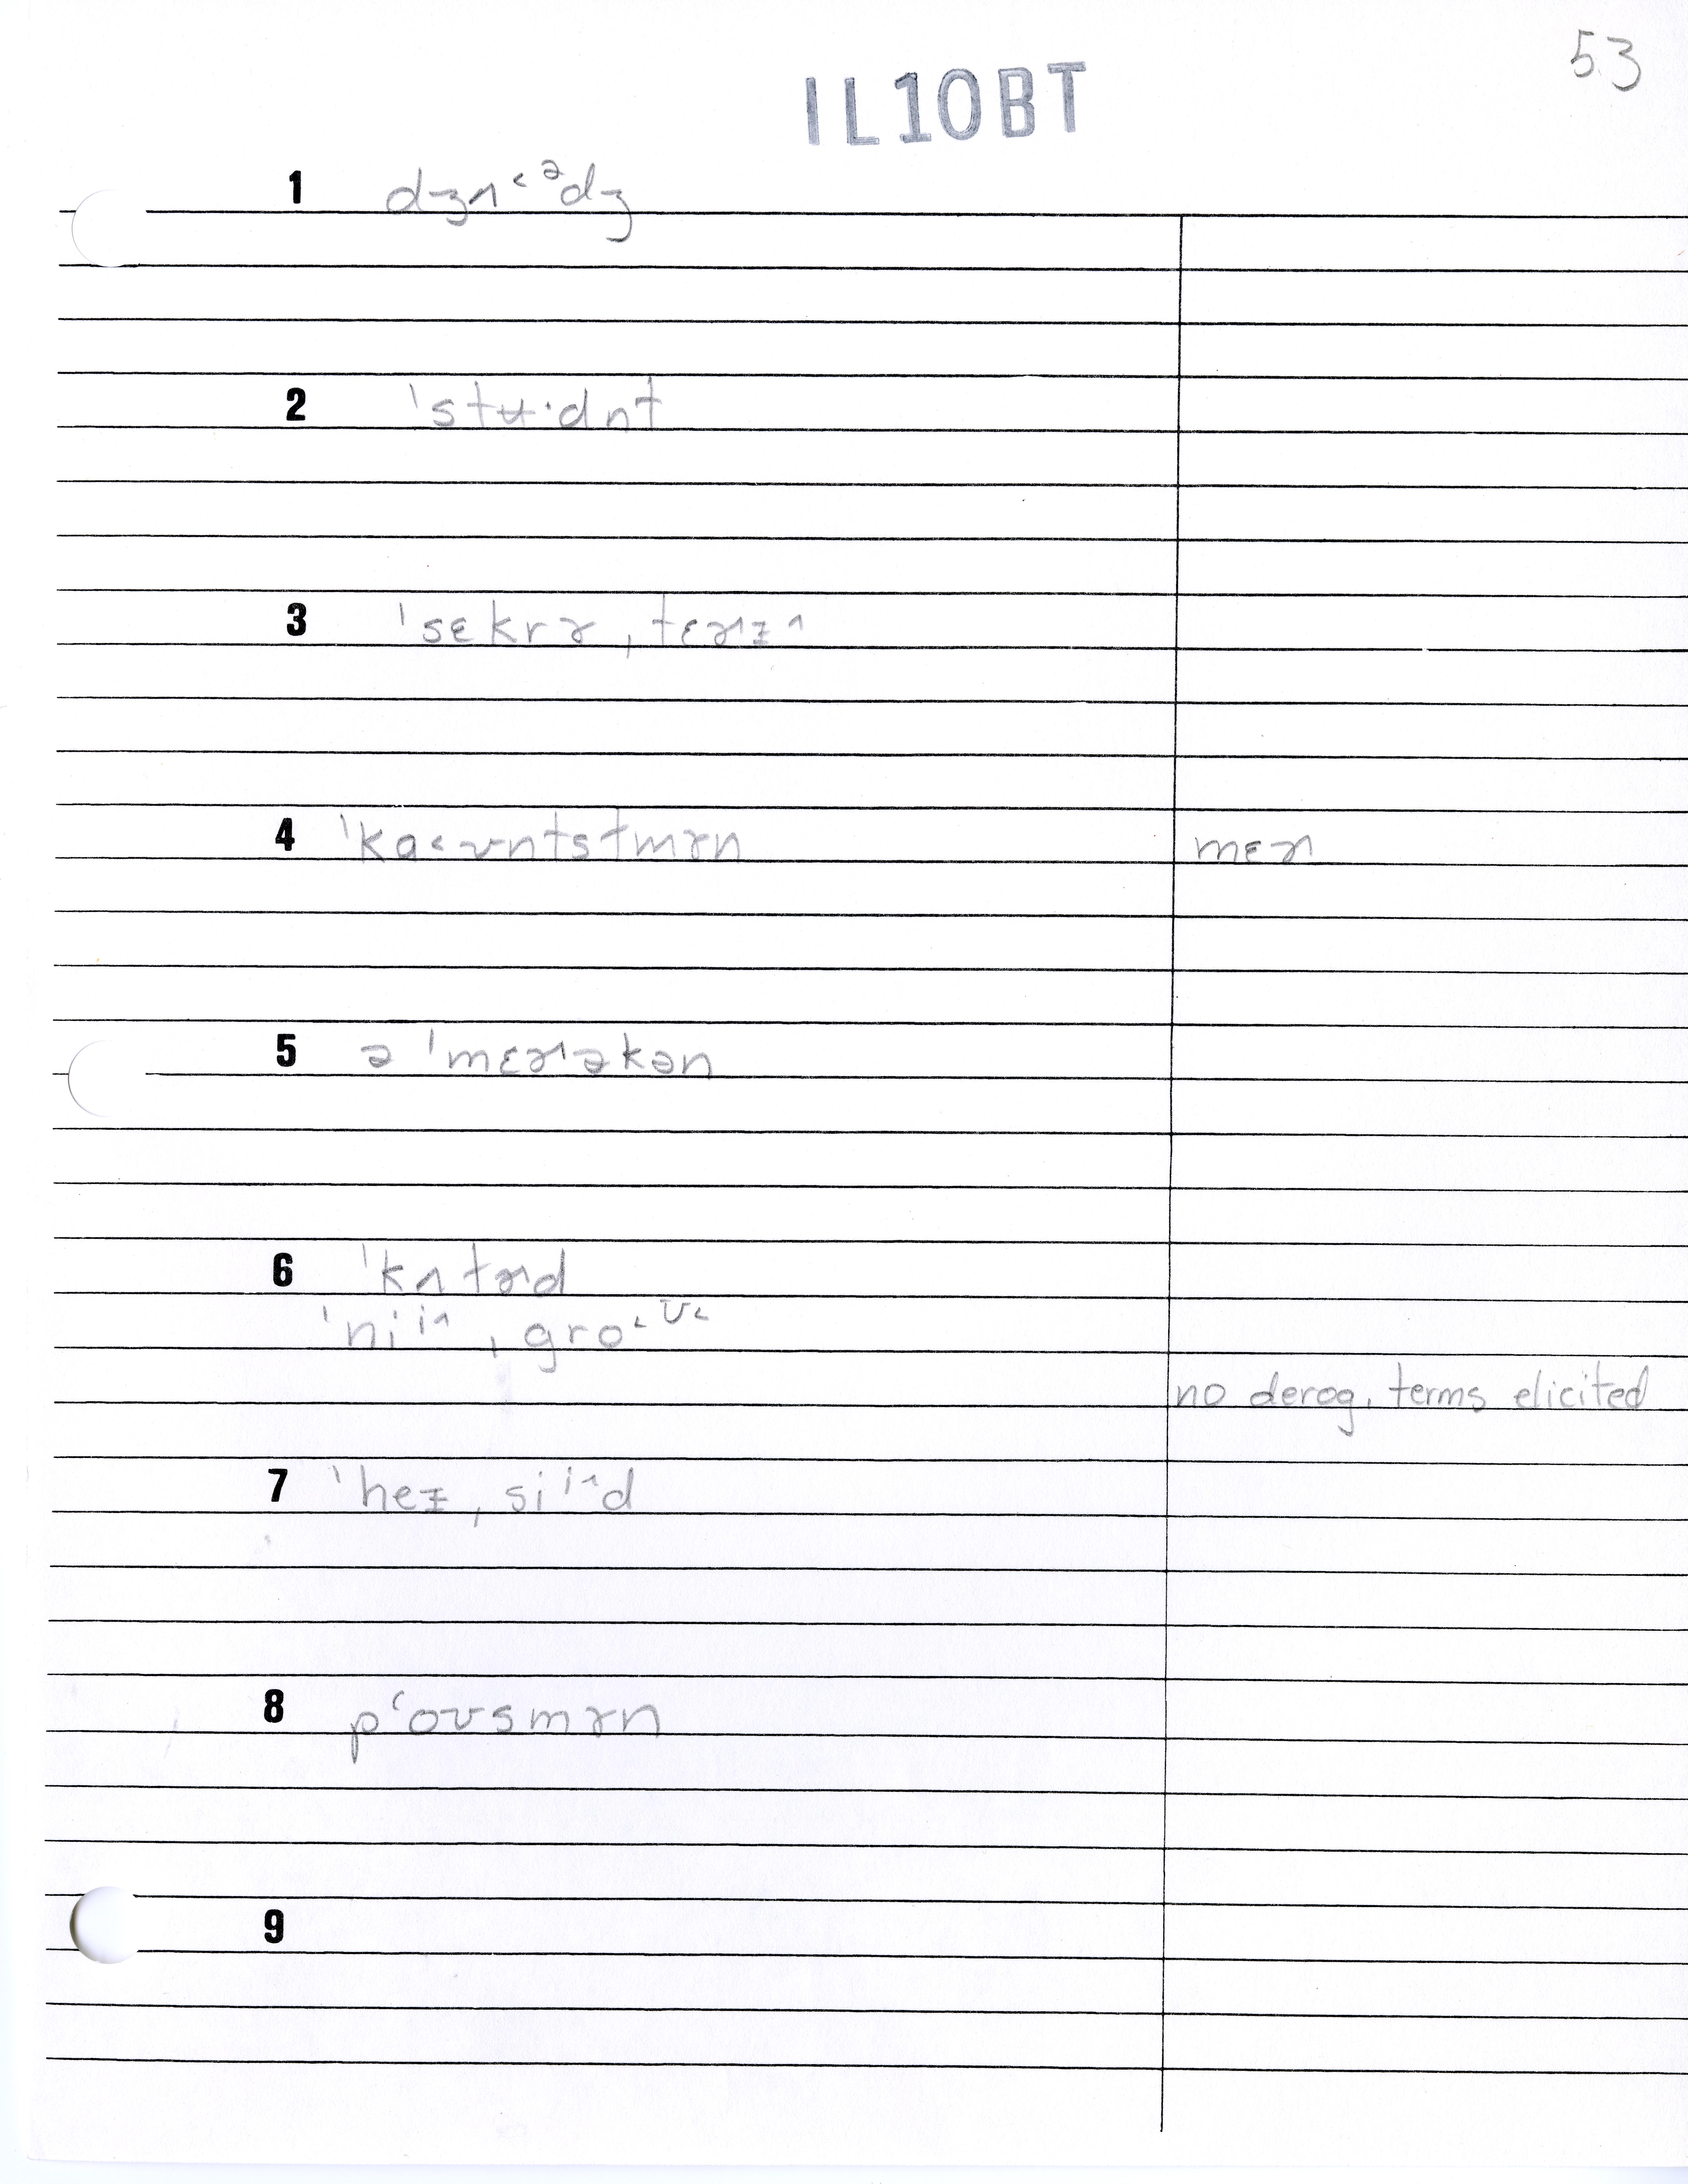 53
IL10BT
1 dʒʌ˂ᵊdʒ
2 ˈstʉ·dnt
3 ˈsɛkrɤˌtɛɚɪ˄
4 ˈkɑ˂ʊntstmɤn mɛɚ
5 əˈmɛɚəkən
6 ˈkʌtɚd
ˈniⁱ˄ˌgro˂ᶷ˂
no derog. terms elicited
7 ˈheɪˌsiⁱ˄d
8 pʻoʊsmɤn
9